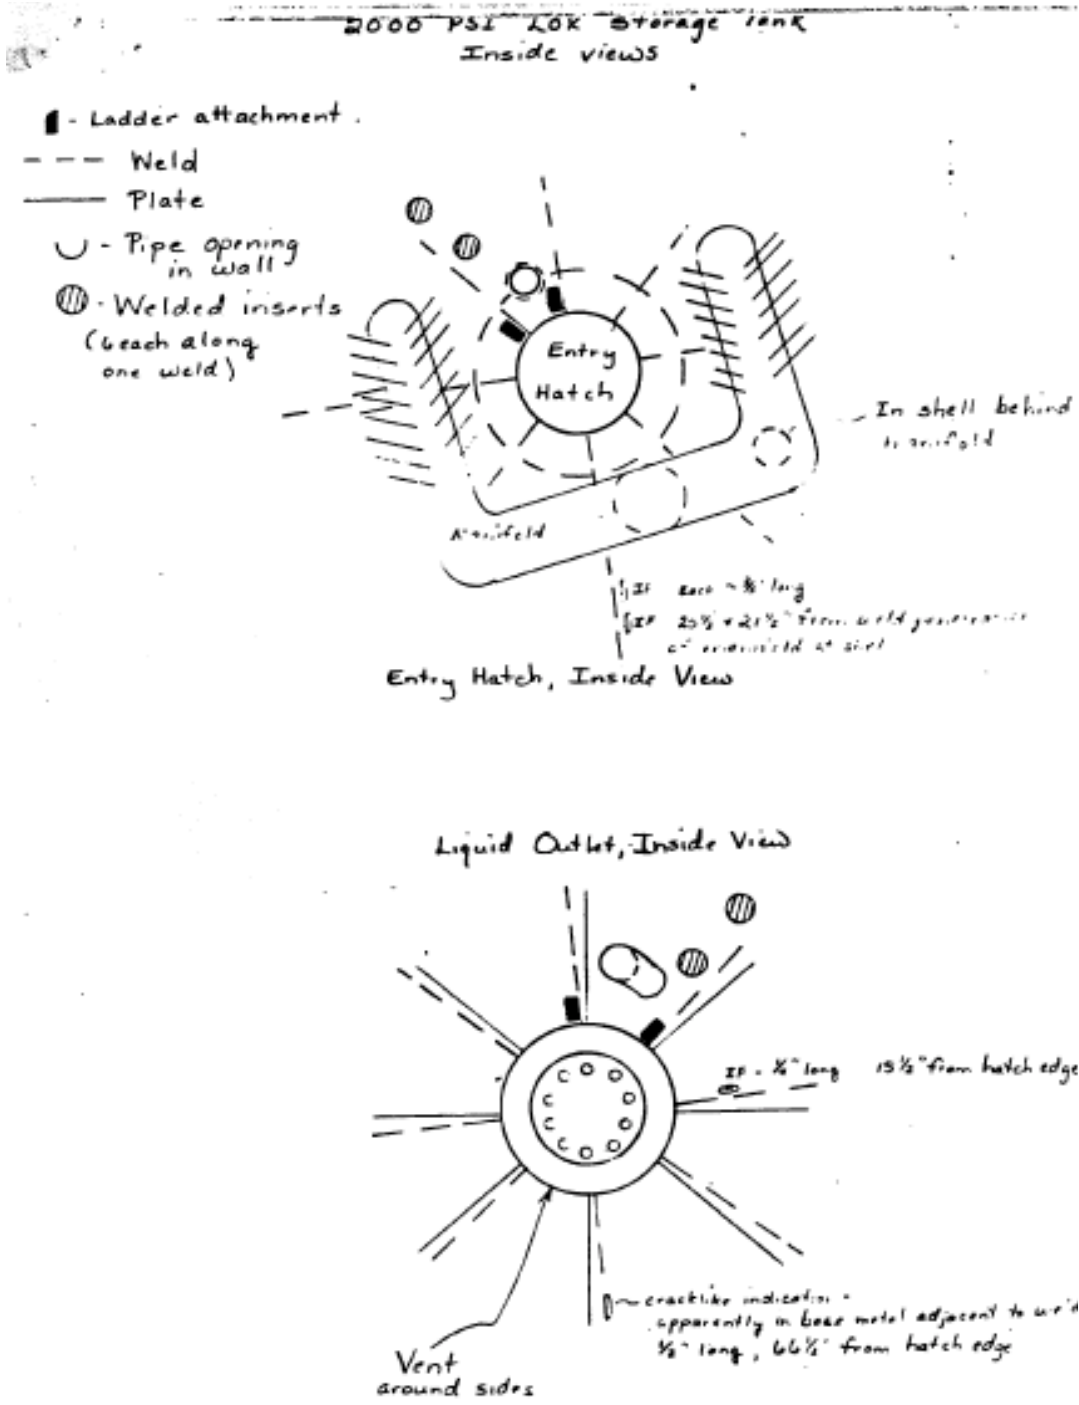 2000 PSI LOX Storage Tank
Inside views
- Ladder attachment.
Weld
Plate
- Pipe opening
in wall
- Welded inserts
(6 each along
one weld)
Entry
Hatch
In shell behind
manifold
Manifold
IF each ~ long
IF 21 1/2" from weld
of manifold at
Entry Hatch, Inside View
Liquid Outlet, Inside View
IF - long 15 1/2" from hatch edge
cracklike indication -
apparently in base metal adjacent to weld
long, 66 1/2" from hatch edge
Vent
around sides